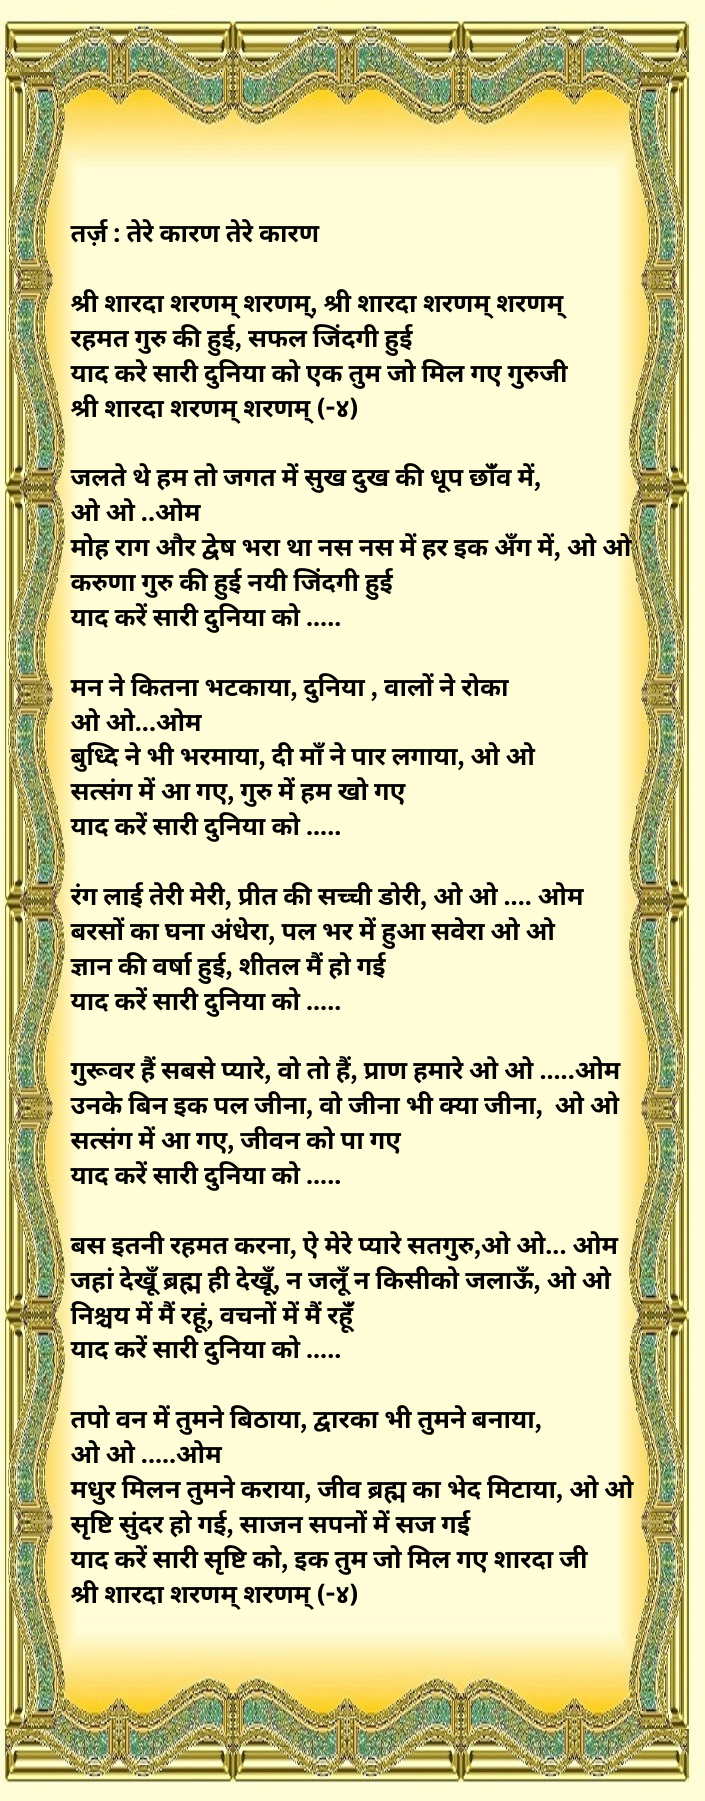 तर्ज़ : तेरे कारण तेरे कारण
श्री शारदा शरणम् शरणम्, श्री शारदा शरणम् शरणम्
रहमत गुरु की हुई, सफल जिंदगी हुई
याद करे सारी दुनिया को एक तुम जो मिल गए गुरुजी
श्री शारदा शरणम् शरणम् (-४)
जलते थे हम तो जगत में सुख दुख की धूप छाँव में,
ओ ओ ..ओम
मोह राग और द्वेष भरा था नस नस में हर इक अँग में, ओ ओ
करुणा गुरु की हुई नयी जिंदगी हुई
याद करें सारी दुनिया को .....
मन ने कितना भटकाया, दुनिया , वालों ने रोका
ओ ओ...ओम
बुध्दि ने भी भरमाया, दी माँ ने पार लगाया, ओ ओ
सत्संग में आ गए, गुरु में हम खो गए
याद करें सारी दुनिया को .....
रंग लाई तेरी मेरी, प्रीत की सच्ची डोरी, ओ ओ .... ओम
बरसों का घना अंधेरा, पल भर में हुआ सवेरा ओ ओ
ज्ञान की वर्षा हुई, शीतल मैं हो गई
याद करें सारी दुनिया को .....
गुरूवर हैं सबसे प्यारे, वो तो हैं, प्राण हमारे ओ ओ .....ओम
उनके बिन इक पल जीना, वो जीना भी क्या जीना,  ओ ओ
सत्संग में आ गए, जीवन को पा गए
याद करें सारी दुनिया को .....
बस इतनी रहमत करना, ऐ मेरे प्यारे सतगुरु,ओ ओ... ओम
जहां देखूँ ब्रह्म ही देखूँ, न जलूँ न किसीको जलाऊँ, ओ ओ
निश्चय में मैं रहूं, वचनों में मैं रहूँ
याद करें सारी दुनिया को .....
तपो वन में तुमने बिठाया, द्वारका भी तुमने बनाया,
ओ ओ .....ओम
मधुर मिलन तुमने कराया, जीव ब्रह्म का भेद मिटाया, ओ ओ
सृष्टि सुंदर हो गई, साजन सपनों में सज गई
याद करें सारी सृष्टि को, इक तुम जो मिल गए शारदा जी
श्री शारदा शरणम् शरणम् (-४)